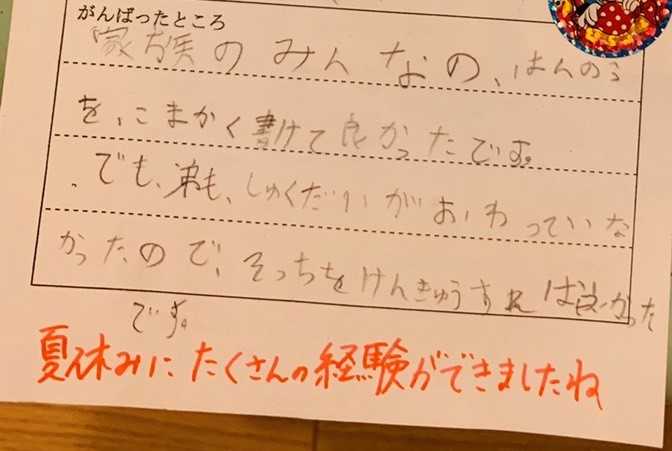 がんばったところ
家族のみんなの、はんのう
を、こまかく書けて良かったです。
、でも、弟も、しゅくだいがおわっていな
かったので、そっちをけんきゅうすれば良かった
です。
夏休みにたくさんの経験ができましたね